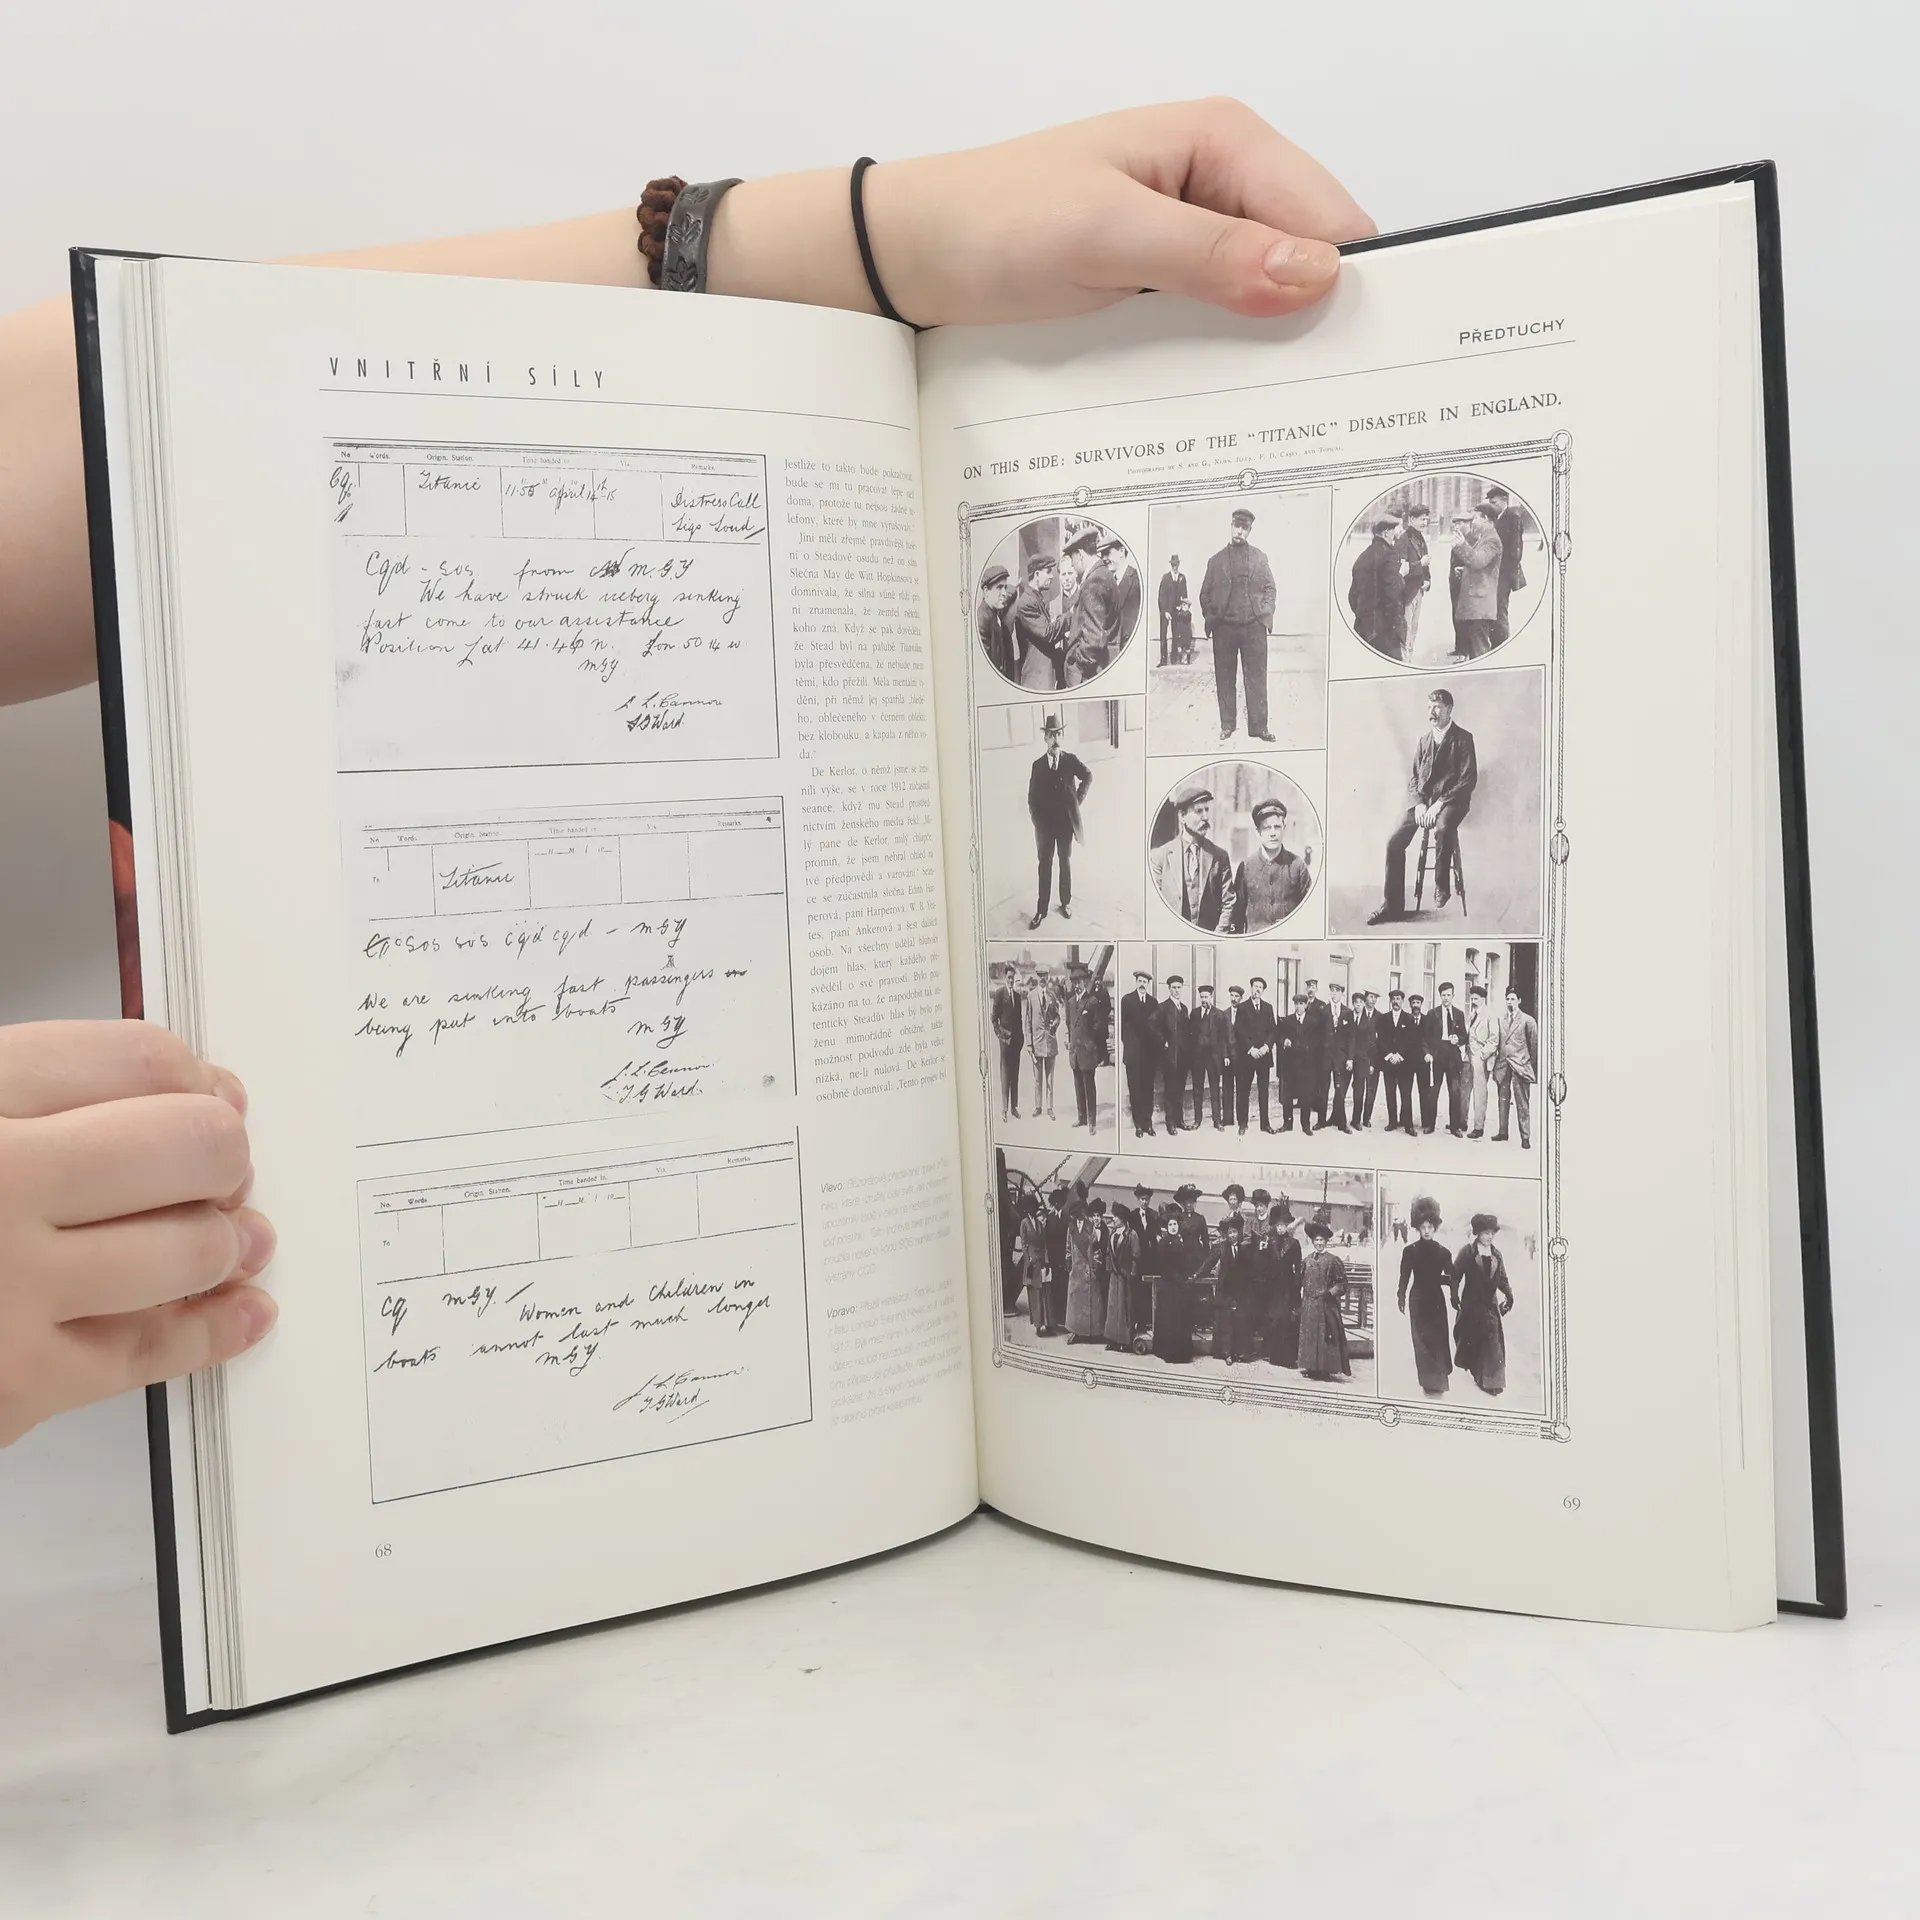 VNITŘNÍ SÍLY
No Words. Origin. Station. Time handed in. Via. Remarks
Titanic 11.50 April 14th 15 Distress Call
Sigs Loud
Cqd - SOS from M.G.Y
We have struck iceberg sinking
fast come to our assistance
Position Lat 41.46 n. Lon 50 14 w
MGY
L. Cannon
Ward
No. Words. Origin. Station. Time handed in. Via. Remarks
To
Titanic
H M 19
SOS SOS cqd cqd - MGY
We are sinking fast passengers
being put into boats
MGY
Cannon
Ward.
No. Words. Origin. Station. Time handed in. Via. Remarks.
To
H M 19
CQ MGY. Women and children in
boats cannot last much longer
MGY
Cannon
Ward
Jestliže to takto bude pokračovat
bude se mi tu pracovat lépe než
doma, protože tu nejsou žádné te-
lefony, které by mne vyrušovaly."
Jiní měli zřejmě pravdivější tuše-
ní o Steadově osudu než on sám.
Slečna May de Witt Hopkinsová se
domnívala, že silná vůně růží pro
ni znamenala, že zemřel někdo,
koho zná. Když se pak dověděla,
že Stead byl na palubě Titaniku,
byla přesvědčena, že nebude mezi
těmi, kdo přežili. Měla mentální vi-
dění, při němž jej spatřila „bledé-
ho, oblečeného v černém obleku,
bez klobouku, a kapala z něho vo-
da."
De Kerlor, o němž jsme se zmí-
nili výše, se v roce 1912 zúčastnil
seance, když mu Stead prostřed-
nictvím ženského média řekl: „Mi-
lý pane de Kerlor, milý chlapče,
promiň, že jsem nebral ohled na
tvé předpovědi a varování." Sean-
ce se zúčastnila slečna Edith Har-
perová, paní Harperová, W. B. Yea-
tes, paní Ankerová a šest dalších
osob. Na všechny udělal hluboký
dojem hlas, který každého pře-
svědčil o své pravosti. Bylo pou-
kázáno na to, že napodobit tak au-
tenticky Steadův hlas by bylo pro
ženu mimořádně obtížné, takže
možnost podvodu zde byla velice
nízká, ne-li nulová. De Kerlor se
osobně domníval: „Tento projev byl
Vlevo:
vystřídalo CQD.
Vpravo:
68
PŘEDTUCHY
ON THIS SIDE: SURVIVORS OF THE "TITANIC" DISASTER IN ENGLAND.
PHOTOGRAPHS BY S. AND G., NEWS. ILLUS., F. D. CASEY, AND TOPICAL.
5
6
69